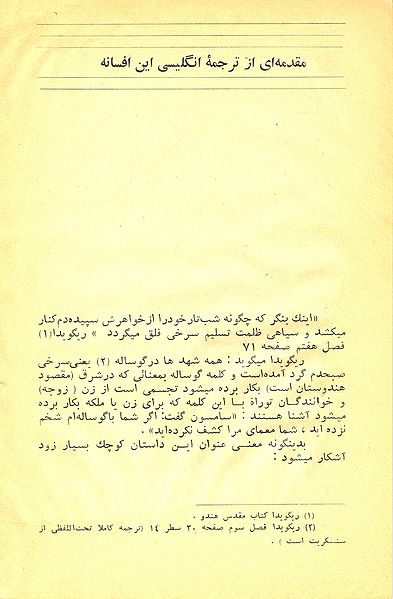 مقدمه‌ای از ترجمهٔ انگلیسی این افسانه
«اینك بنگر که چگونه شب‌تار خود را از خواهرش سپیده‌دم‌کنار
میکشد و سیاهی ظلمت تسلیم سرخی فلق میگردد » ریگویدا(۱)
فصل هفتم صفحه ۷۱
ریگویدا میگوید : همه شهد ها در گوساله (۲) یعنی سرخی
صبحدم گرد آمده‌است و کلمه گوساله بمعنائی که درشرق (مقصود
هندوستان است) بکار برده میشود تجسمی است از زن ( زوجه)
و خوانندگان توراة با این کلمه که برای زن یا ملکه بکار برده
میشود آشنا هستند : «سامسون گفت: اگر شما باگوساله‌ام شخم
نزده اید ، شما معمای مرا کشف نکرده‌اید» .
بدینگونه معنی عنوان این داستان کوچك بسیار زود
آشکار میشود :
(۱) ریگویدا کتاب مقدس هندو .
(۲) ریگویدا فصل سوم صفحه ۳۰ سطر ۱۴ (ترجمه کاملا تحت‌اللفظی از
سنسکریت است ) .